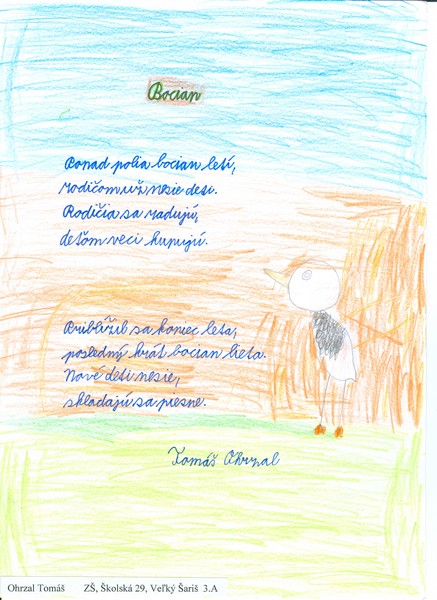 Bocian
Ponad polia bocian letí,
rodičom už nesie deti.
Rodičia sa radujú,
deťom veci kupujú.
Priblížil sa koniec leta,
posledný krát bocian lieta.
Nové deti nesie,
skladajú sa piesne.
Tomáš Ohrzal
Ohrzal Tomáš ZŠ, Školská 29, Veľký Šariš 3.A